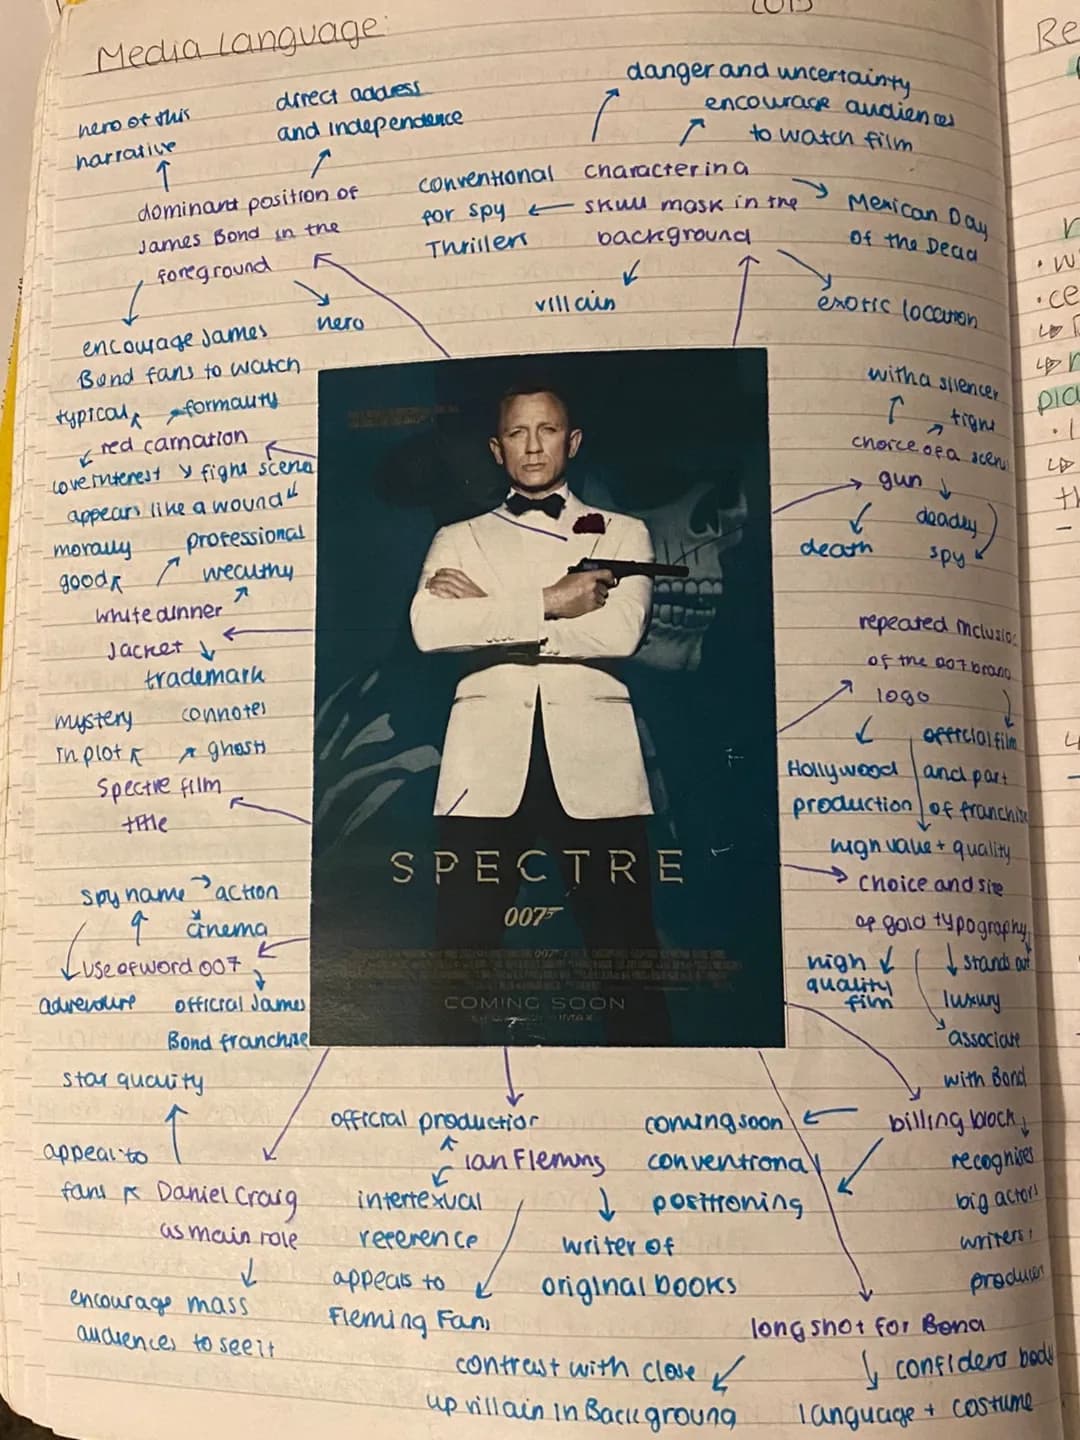 Media Language:
2015
Re
hero of this
narrative
direct address
and independence
danger and uncertainty
encourage audiences
to watch film
dominant position of
James Bond in the
foreground
conventional
for spy
Thrillers
character in a
skull mask in the
background
Mexican Day
of the Dead
villain
exotic location
encourage James
Bond fans to watch
hero
typical
formality
red carnation
love interest
fight scene
appears like a wound
morally
good
professional
wealthy
white dinner
Jacket
trademark
mystery
in plot
connotes
ghosts
Spectre film
title
spy name
action
cinema
use of word 007
adventure
official James
Bond franchise
with a silencer
fight
choice of a scene
gun
deadly
death
spy
repeated inclusio
of the 007 brand
logo
Hollywood
production
official film
and part
of franchise
high value + quality
choice and size
of gold typography
high
quality
film
stands out
luxury
associate
with Bond
SPECTRE
007
007
COMING SOON
IMAX
star quality
appeal to
fans
Daniel Craig
as main role
encourage mass
audiences to see it
official production
Ian Fleming
intertexual
reference
appeals to
Fleming Fans
writer of
original books
coming soon
conventional
positioning
billing block
recognises
big actors
writers
producers
long shot for Bond
contrast with close
up villain in Background
confident body
language + costume